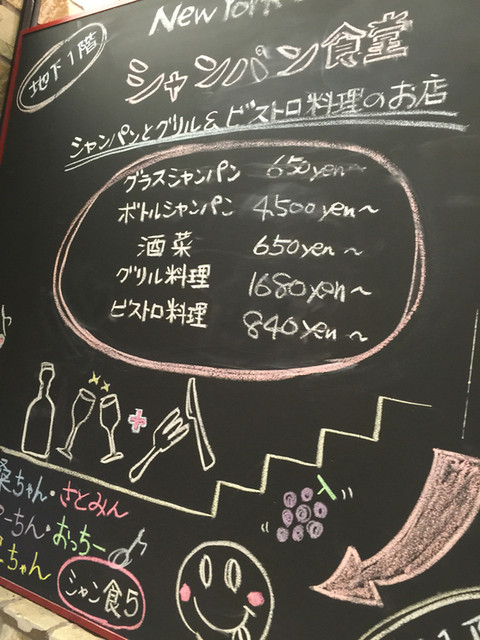 New York
地下1階
シャンパン食堂
シャンパンとグリル&ビストロ料理のお店
グラスシャンパン 650yen〜
ボトルシャンパン 4,500yen〜
酒菜 650yen〜
グリル料理 1680yen〜
ビストロ料理 840yen〜
桑ちゃん・さとみん
ーちん・おっちー
ちゃん
シャン食5